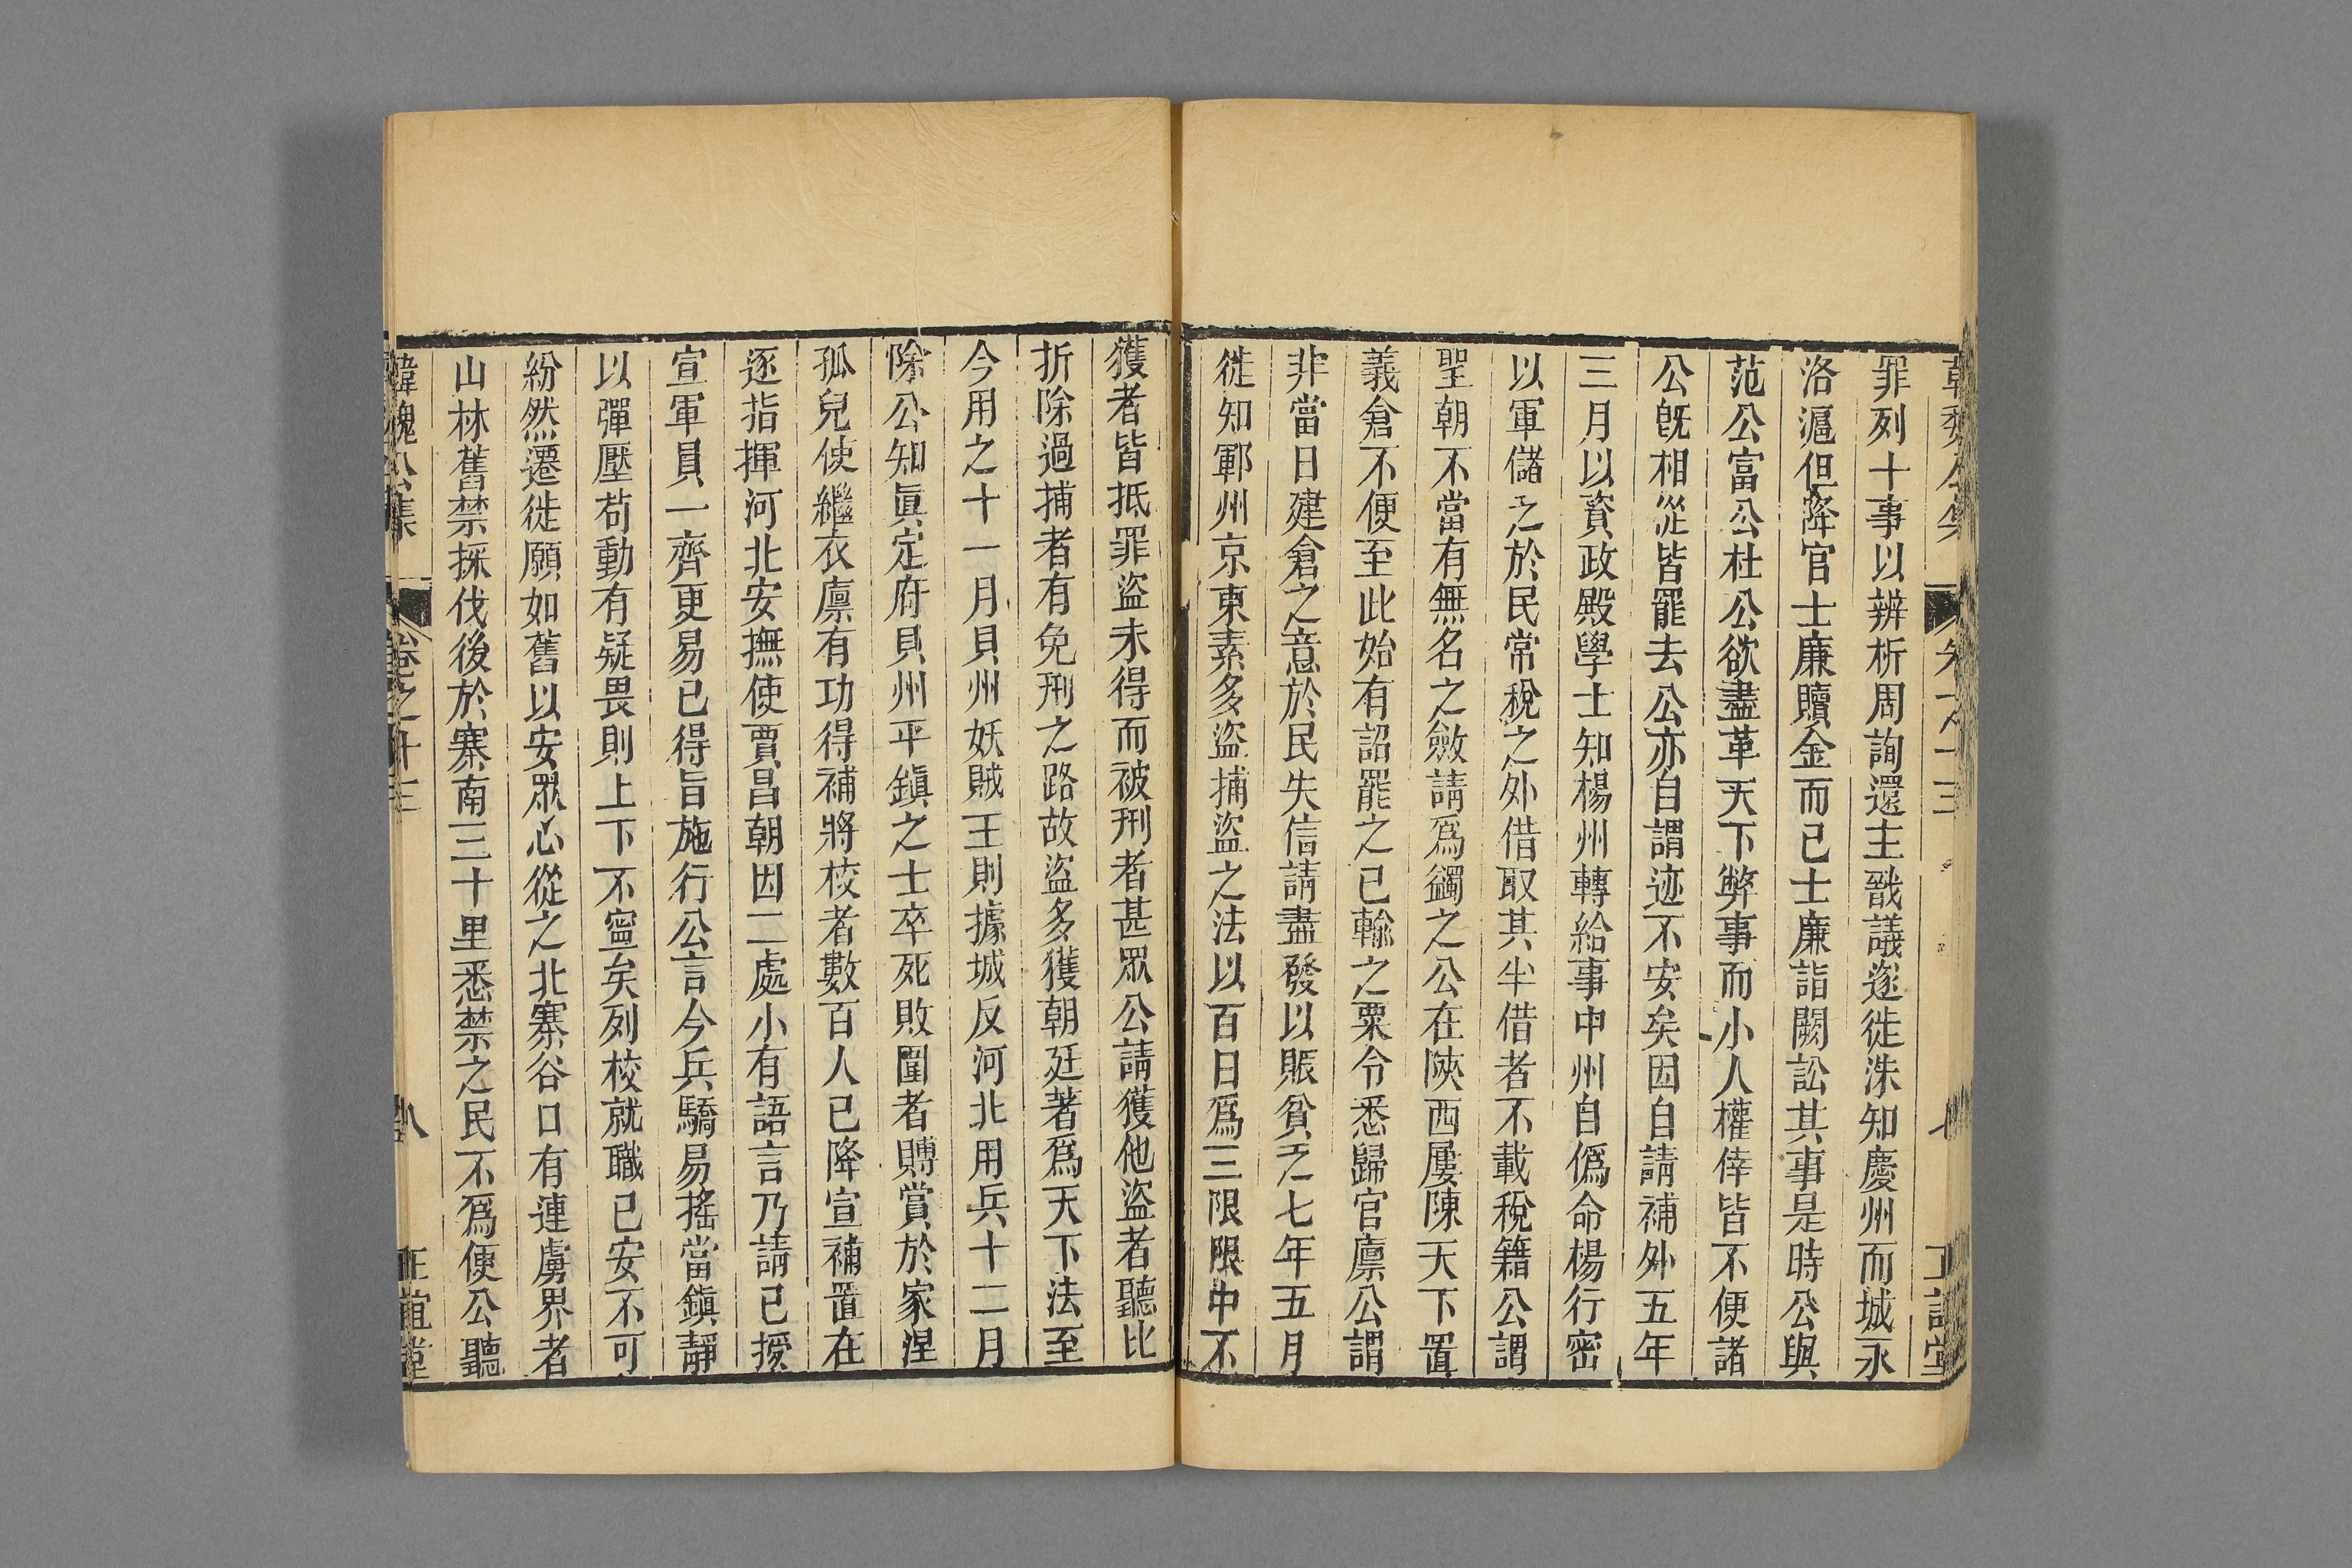 罪列十事以辨析周詢還主戩議遂徙洙知慶州而城永
洛滬但降官士廉贖金而已士廉詣闕訟其事是時公與
范公富公杜公欲盡革天下弊事而小人權倖皆不便諸
公旣相從皆罷去公亦自謂迹不安矣因自請補外五年
三月以資政殿學士知楊州轉給事中州自僞命楊行密
以軍儲乏於民常稅之外借取其半借者不載稅籍公謂
聖朝不當有無名之斂請爲蠲之公在陝西屢陳天下置
義倉不便至此始有詔罷之已輸之粟令悉歸官廪公謂
非當日建倉之意於民失信請盡發以賑貧乏七年五月
徙知鄆州京東素多盜捕盜之法以百日爲三限限中不
獲者皆抵罪盜未得而被刑者甚眾公請獲他盜者聽比
折除過捕者有免刑之路故盜多獲朝廷著爲天下法至
今用之十一月貝州妖賊王則據城反河北用兵十二月
除公知眞定府貝州平鎭之士卒死敗圍者賻賞於家涅
孤兒使繼衣廪有功得補將校者數百人已降宣補置在
逐指揮河北安撫使賈昌朝因二處小有語言乃請已授
宣軍員一齊更易已得旨施行公言今兵驕易搖當鎭靜
以彈壓苟動有疑畏則上下不寧矣列校就職已安不可
紛然遷徙願如舊以安眾心從之北寨谷口有連虜界者
山林舊禁採伐後於寨南三十里悉禁之民不爲便公聽
韓魏公集 卷之十三 八 正誼堂